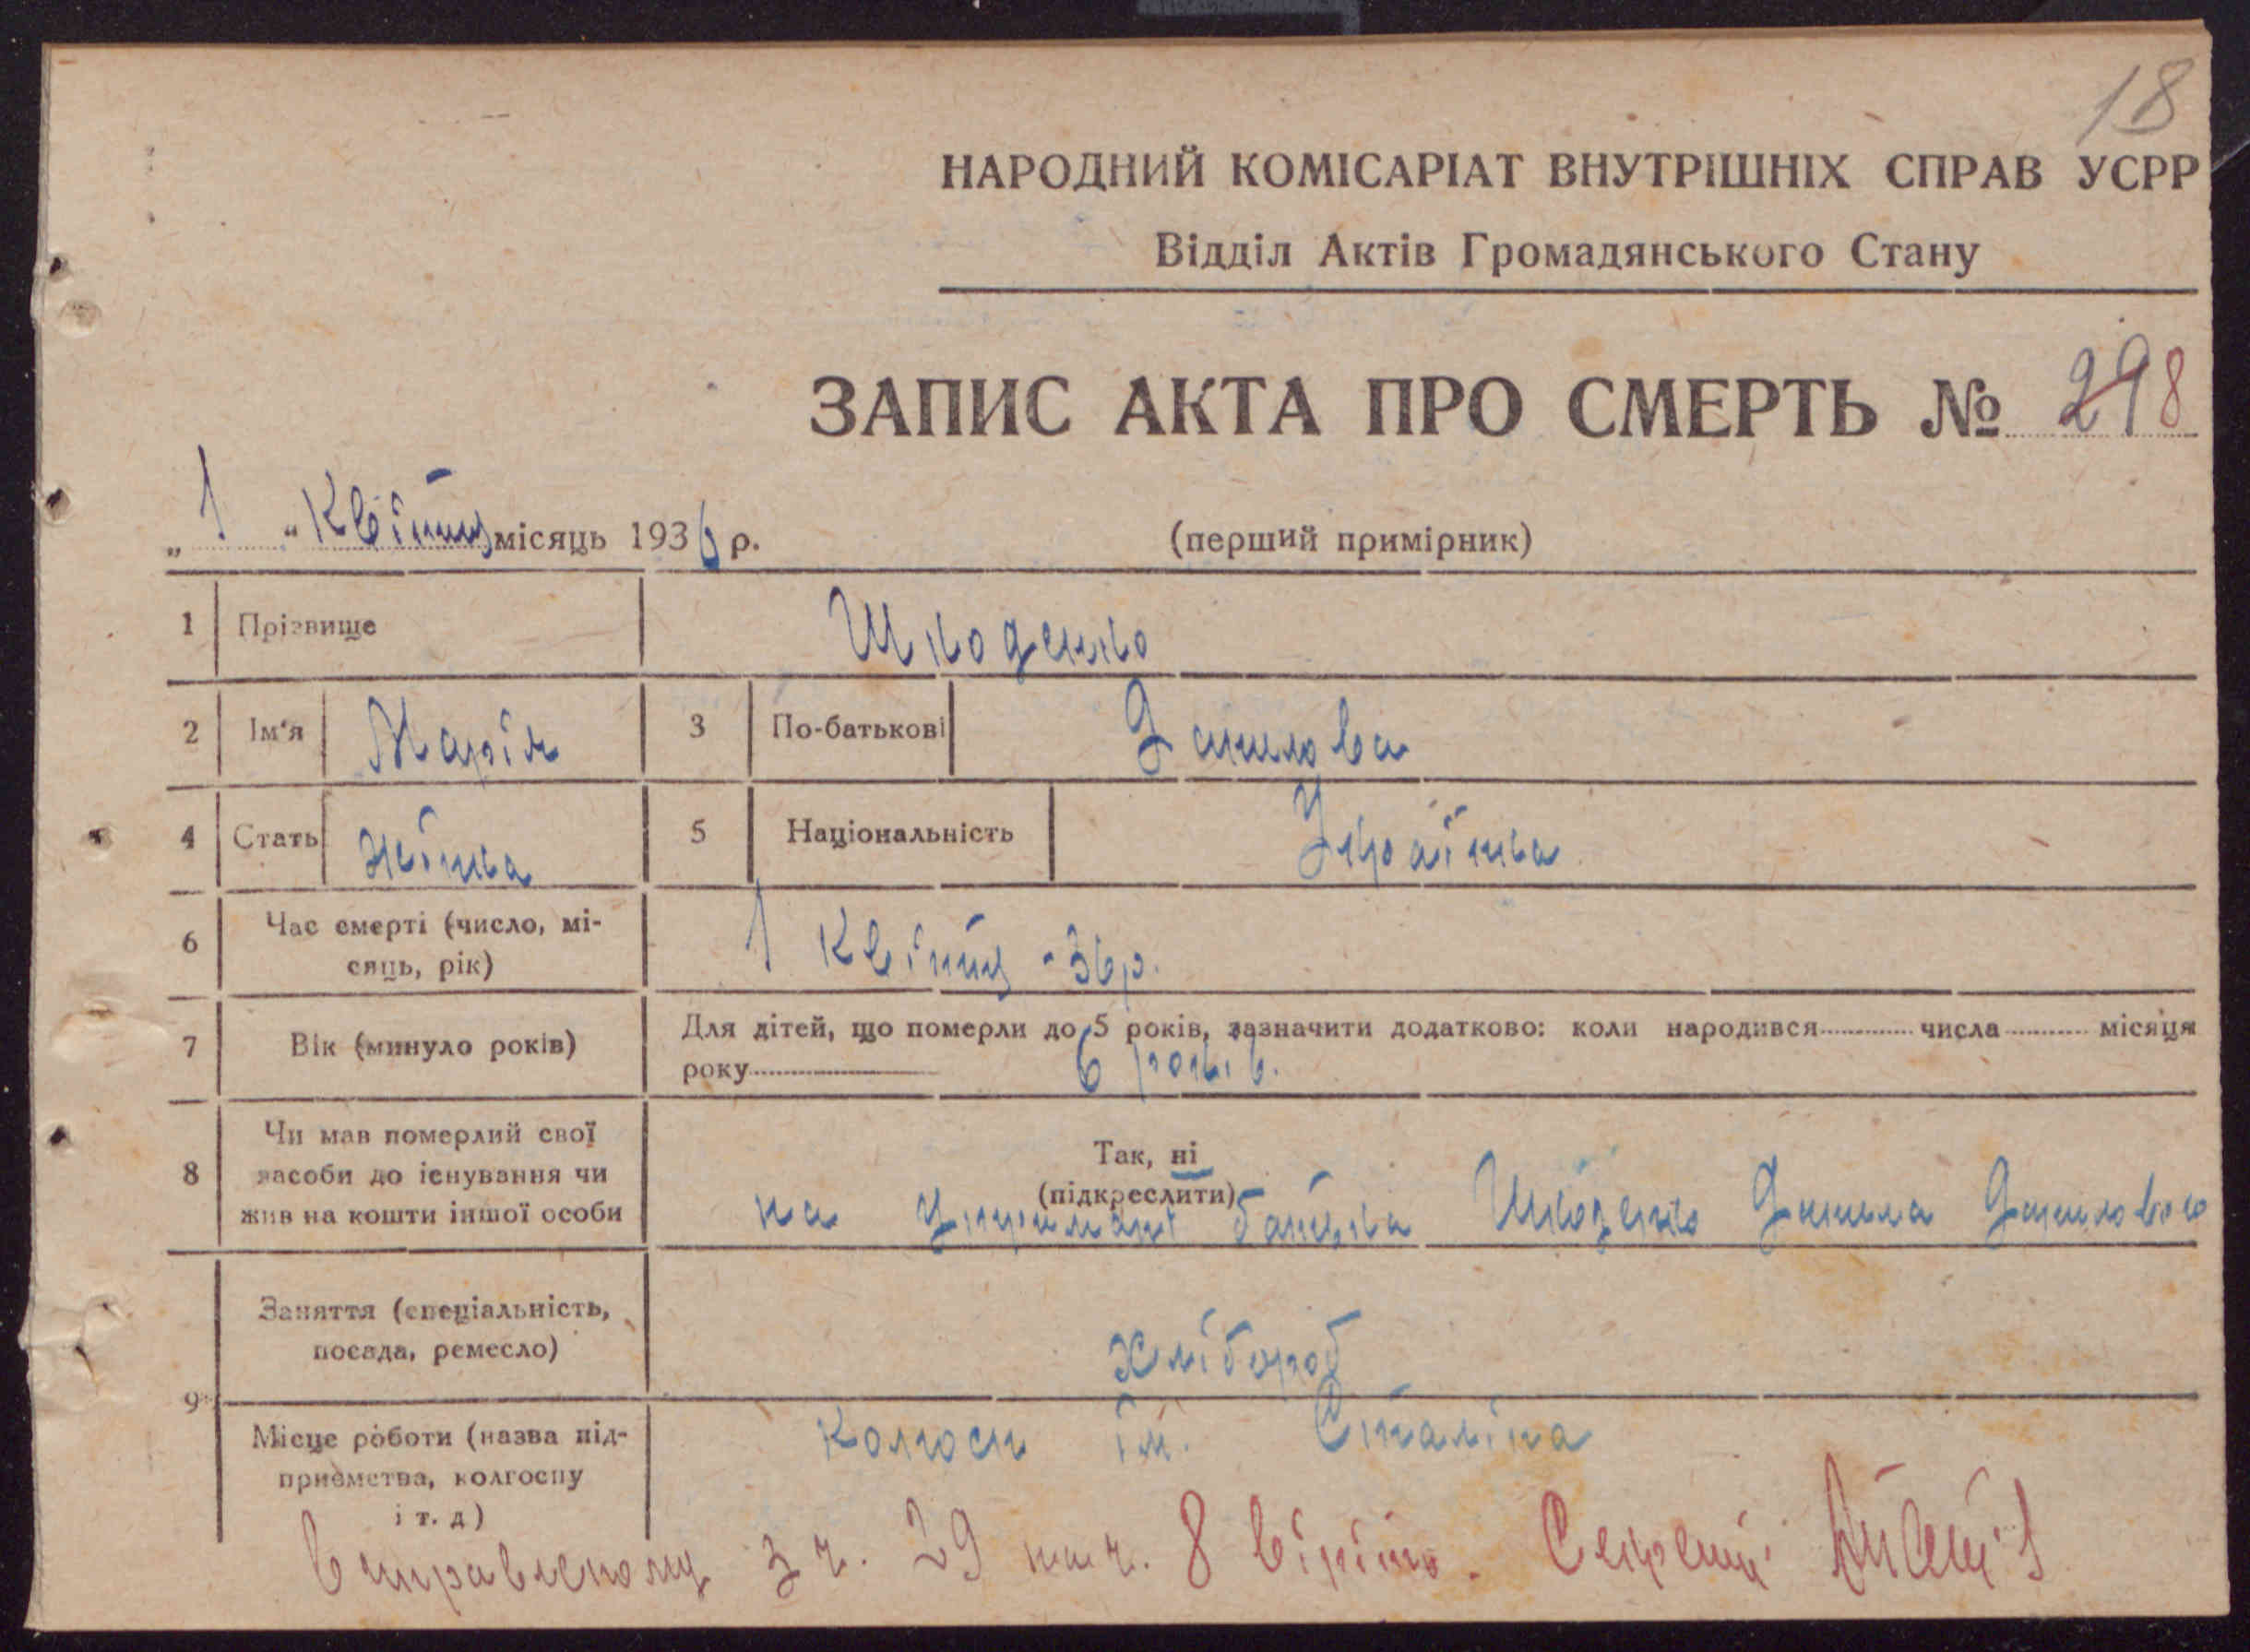 18
НАРОДНИЙ КОМІСАРІАТ ВНУТРІШНІХ СПРАВ УСРР
Відділ Актів Громадянського Стану
ЗАПИС АКТА ПРО СМЕРТЬ № 298
„ 1 “ Квітня місяць 1936 р. (перший примірник)
1 Прізвище Шкоденко
2 Ім'я Марія 3 По-батькові Данилова
4 Стать жінка 5 Національність Українка
6 Час смерті (число, мі-
сяць, рік) 1 Квітня -36р.
7 Вік (минуло років) Для дітей, що померли до 5 років, зазначити додатково: коли народився числа місяця
року 6 років.
8 Чи мав померлий свої
засоби до існування чи
жив на кошти іншої особи
Так, ні
(підкреслити)
на утримані батька Шкоденко Данила Даниловою
9 Заняття (спеціальність,
посада, ремесло) Хлібороб
Місце роботи (назва під-
приємства, колгоспу
і т. д) Колгосп ім. Сталіна
Виправленому з ч. 29 на ч. 8 вірить. Секрет